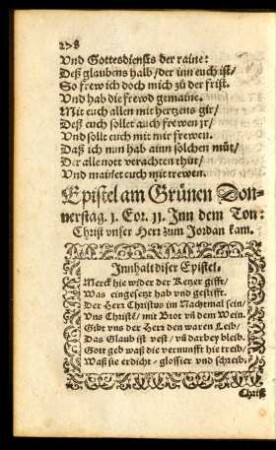 278
Vnd Gottesdiensts der raine:
Deß glaubens halb / der inn euch ist /
So frew ich doch mich zu der frist.
Vnd hab die frewd gemaine.
Mit euch allen mit hertzens gir /
Deß euch sollet auch frewen jr /
Vnd sollt euch mit mir frewen.
Daß ich nun hab ainn solchen můt /
Der alle nott verachten thůt /
Vnd mainet euch mit trewen.
Epistel am Grünen Don-
nerstag. 1. Cor. 11. Inn dem Ton:
Christ vnser Herr zum Jordan kam.
Innhalt diser Epistel.
Merck hie wider der Ketzer gifft /
Was eingesetzt hab vnd gestifft.
Der Herr Christus im Nachtmal sein /
Vns Christē / mit Brot vñ dem Wein.
Gibt vns der Herr den waren Leib /
Das Glaub ist vest / vñ darbey bleib.
Gott geb waß die vernunfft hie treib /
Waß sie erdicht / glossier vnd schreib.
Christ